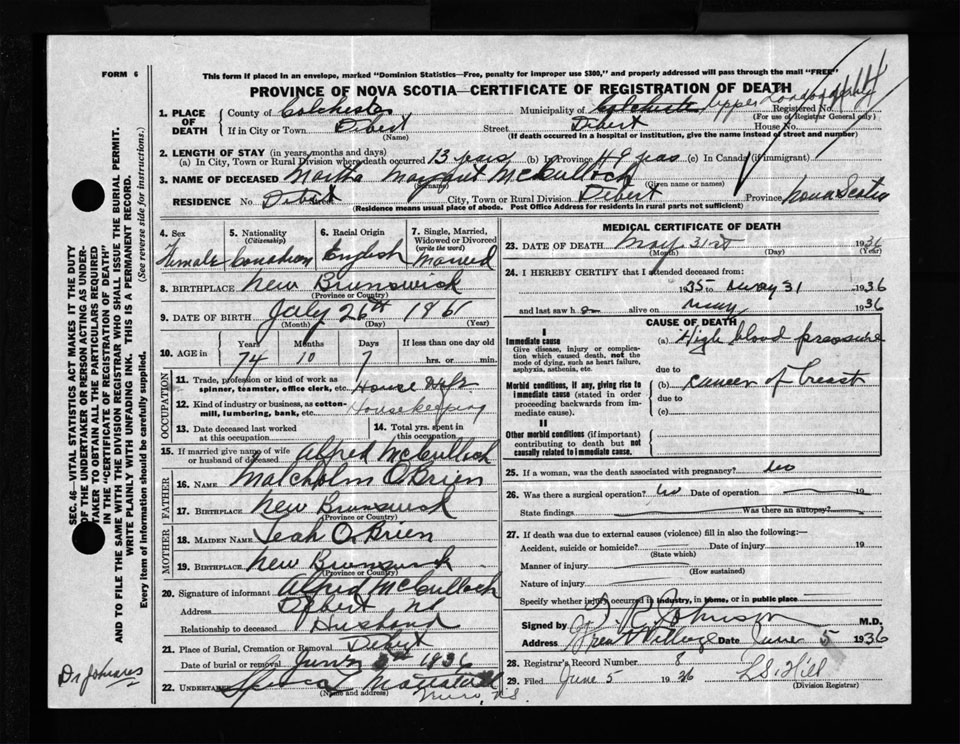 FORM 6
This form if placed in an envelope, marked "Dominion Statistics—Free, penalty for improper use $300," and properly addressed will pass through the mail "FREE"
PROVINCE OF NOVA SCOTIA—CERTIFICATE OF REGISTRATION OF DEATH
1. PLACE OF DEATH
County of Colchester Municipality of Colchester Upper Londonderry Registered No.
(For use of Registrar General only)
If in City or Town Debert Street Debert House No.
(Name) (If death occurred in a hospital or institution, give the name instead of street and number)
2. LENGTH OF STAY (in years, months and days)
(a) In City, Town or Rural Division where death occurred 13 years (b) In Province 49 yrs (c) In Canada (if immigrant)
3. NAME OF DECEASED Martha Margaret McCulloch
(Surname) (Given name or names)
RESIDENCE No. Debert City, Town or Rural Division Debert Province Nova Scotia
(Residence means usual place of abode. Post Office Address for residents in rural parts not sufficient)
4. Sex 5. Nationality (Citizenship) 6. Racial Origin 7. Single, Married, Widowed or Divorced (write the word)
Female Canadian English Married
8. BIRTHPLACE New Brunswick
(Province or Country)
9. DATE OF BIRTH July 26th 1861
(Month) (Day) (Year)
10. AGE in Years Months Days If less than one day old
74 10 7 hrs. or min.
OCCUPATION
11. Trade, profession or kind of work as spinner, teamster, office clerk, etc. House Wife
12. Kind of industry or business, as cotton-mill, lumbering, bank, etc. Housekeeping
13. Date deceased last worked at this occupation 14. Total yrs. spent in this occupation
15. If married give name of wife or husband of deceased Alfred McCulloch
FATHER
16. NAME Malcholm O'Brien
17. BIRTHPLACE New Brunswick
(Province or Country)
MOTHER
18. MAIDEN NAME Leah O'Brien
19. BIRTHPLACE New Brunswick
(Province or Country)
20. Signature of informant Alfred McCulloch
Address Debert NS
Relationship to deceased Husband
21. Place of Burial, Cremation or Removal Debert
Date of burial or removal June 1936
22. UNDERTAKER
(Name and address)
Truro, N.S.
MEDICAL CERTIFICATE OF DEATH
23. DATE OF DEATH May 31st 1936
(Month) (Day) (Year)
24. I HEREBY CERTIFY that I attended deceased from:
1935 to May 31 1936
and last saw h alive on May 1936
CAUSE OF DEATH
I
Immediate cause
Give disease, injury or complication which caused death, not the mode of dying, such as heart failure, asphyxia, asthenia, etc.
(a) High blood pressure
due to
Morbid conditions, if any, giving rise to immediate cause (stated in order proceeding backwards from immediate cause).
(b) cancer of breast
due to
(c)
II
Other morbid conditions (if important) contributing to death but not causally related to immediate cause.
25. If a woman, was the death associated with pregnancy? no
26. Was there a surgical operation? no Date of operation 19
State findings Was there an autopsy?
27. If death was due to external causes (violence) fill in also the following:—
Accident, suicide or homicide? Date of injury 19
(State which)
Manner of injury
(How sustained)
Nature of injury
Specify whether injury occurred in industry, in home, or in public place
Signed by Johnson M.D.
Address Great Village Date June 5 1936
28. Registrar's Record Number 8
29. Filed June 5 1936 L S Hill
(Division Registrar)
SEC. 46—VITAL STATISTICS ACT MAKES IT THE DUTY
OF THE UNDERTAKER OR PERSON ACTING AS UNDERTAKER TO OBTAIN ALL THE PARTICULARS REQUIRED
IN THE "CERTIFICATE OF REGISTRATION OF DEATH"
AND TO FILE THE SAME WITH THE DIVISION REGISTRAR WHO SHALL ISSUE THE BURIAL PERMIT.
WRITE PLAINLY WITH UNFADING INK. THIS IS A PERMANENT RECORD.
Every item of information should be carefully supplied.
(See reverse side for instructions.)